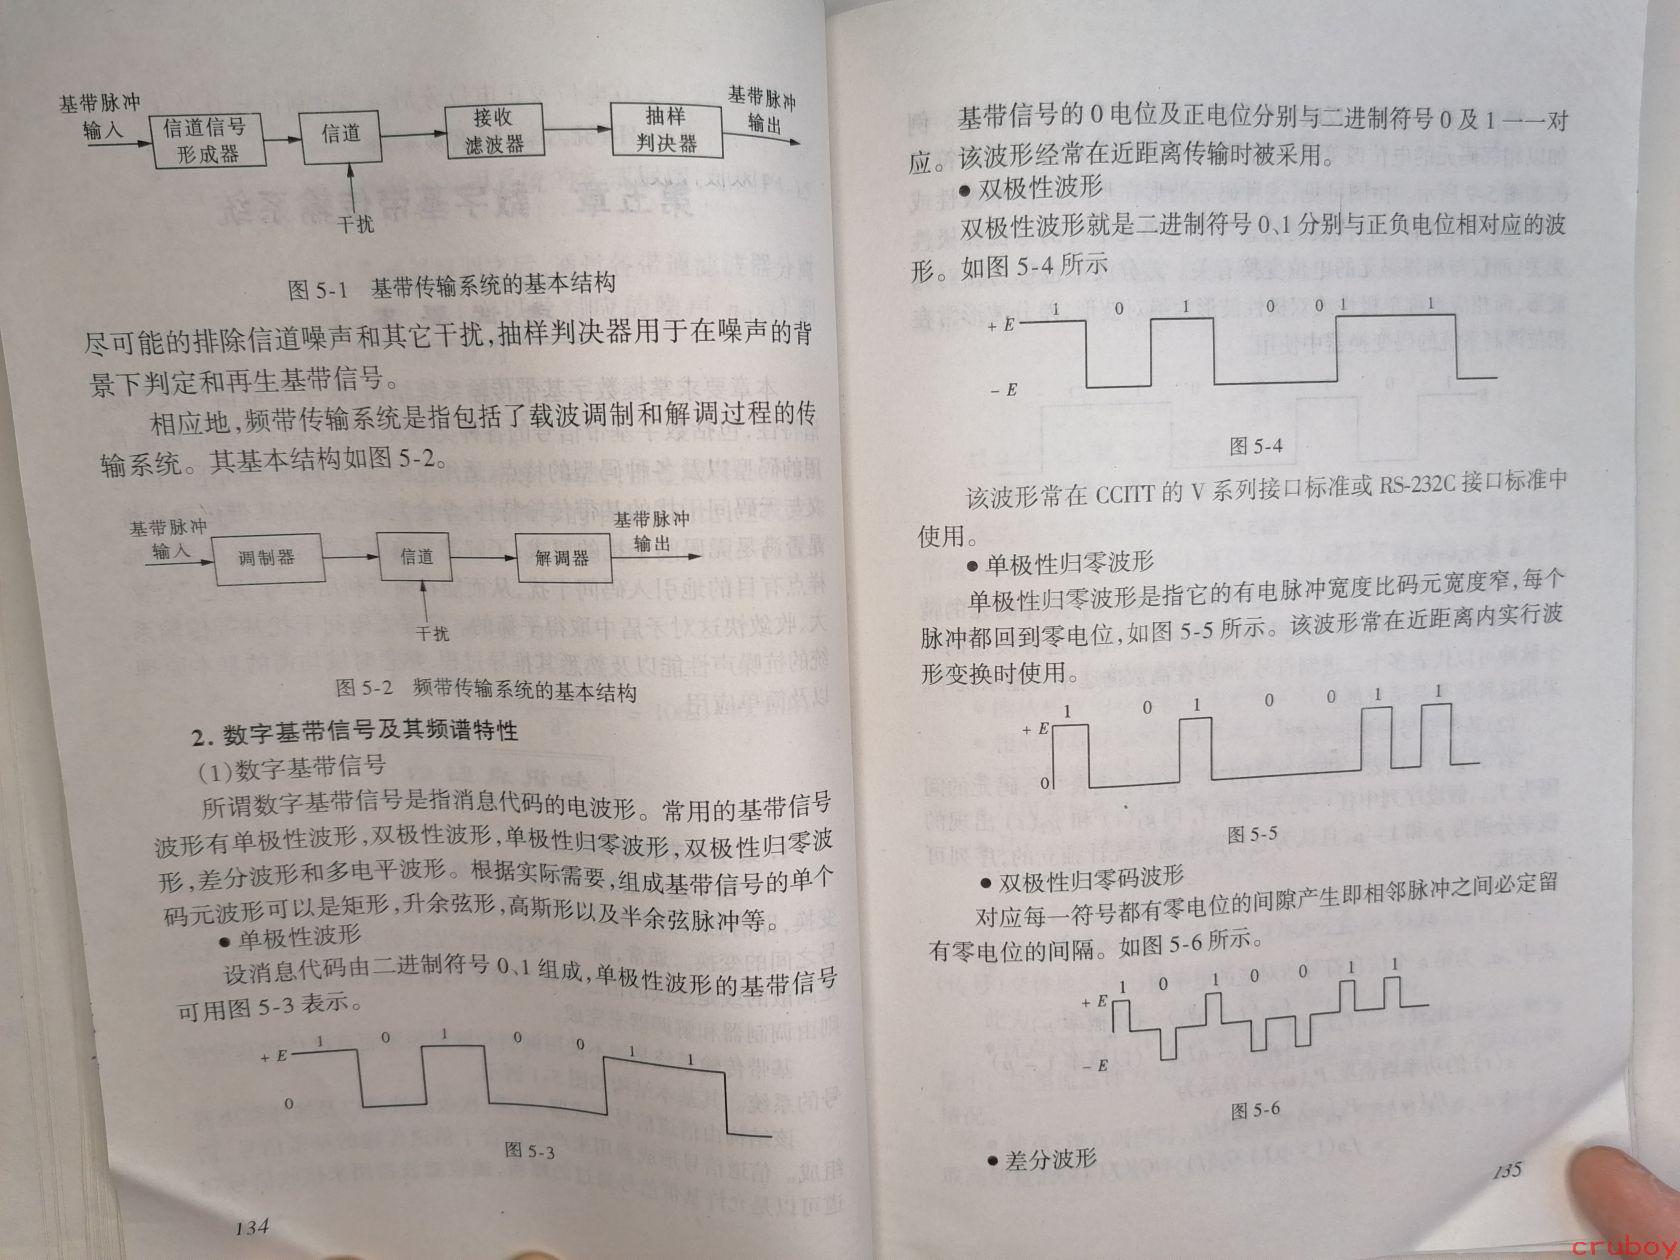 基带脉冲
输入
信道信号
形成器
信道
接收
滤波器
抽样
判决器
基带脉冲
输出
干扰
图 5-1 基带传输系统的基本结构
尽可能的排除信道噪声和其它干扰,抽样判决器用于在噪声的背
景下判定和再生基带信号。
相应地,频带传输系统是指包括了载波调制和解调过程的传
输系统。其基本结构如图 5-2。
基带脉冲
输入
调制器
信道
解调器
基带脉冲
输出
干扰
图 5-2 频带传输系统的基本结构
2. 数字基带信号及其频谱特性
(1)数字基带信号
所谓数字基带信号是指消息代码的电波形。常用的基带信号
波形有单极性波形,双极性波形,单极性归零波形,双极性归零波
形,差分波形和多电平波形。根据实际需要,组成基带信号的单个
码元波形可以是矩形,升余弦形,高斯形以及半余弦脉冲等。
● 单极性波形
设消息代码由二进制符号 0、1 组成,单极性波形的基带信号
可用图 5-3 表示。
+ E 1 0 1 0 0 1 1
0
图 5-3
134
基带信号的 0 电位及正电位分别与二进制符号 0 及 1 一一对
应。该波形经常在近距离传输时被采用。
● 双极性波形
双极性波形就是二进制符号 0、1 分别与正负电位相对应的波
形。如图 5-4 所示
1 0 1 0 0 1 1
+ E
- E
图 5-4
该波形常在 CCITT 的 V 系列接口标准或 RS-232C 接口标准中
使用。
● 单极性归零波形
单极性归零波形是指它的有电脉冲宽度比码元宽度窄,每个
脉冲都回到零电位,如图 5-5 所示。该波形常在近距离内实行波
形变换时使用。
1 0 1 0 0 1 1
+ E
0
图 5-5
● 双极性归零码波形
对应每一符号都有零电位的间隙产生即相邻脉冲之间必定留
有零电位的间隔。如图 5-6 所示。
1 0 1 0 0 1 1
+ E
- E
图 5-6
● 差分波形
135
cruboy